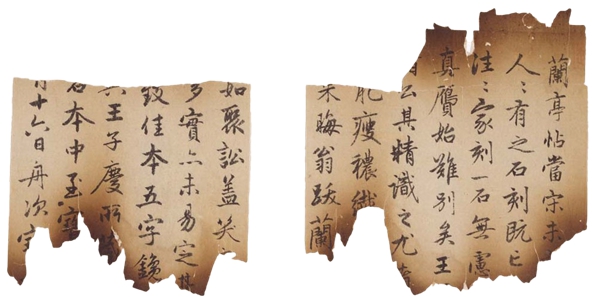 蘭亭帖當宋未
人〻有之石刻既亡
注〻家刻一石無慮
真贗始難別矣王
公其精識之尤者
肥瘦穠纖
朱晦翁跋蘭
如聚訟蓋笑
多實亦未易定其
致佳本五字鑱
與王子慶所
石本中至寶
月十六日舟次